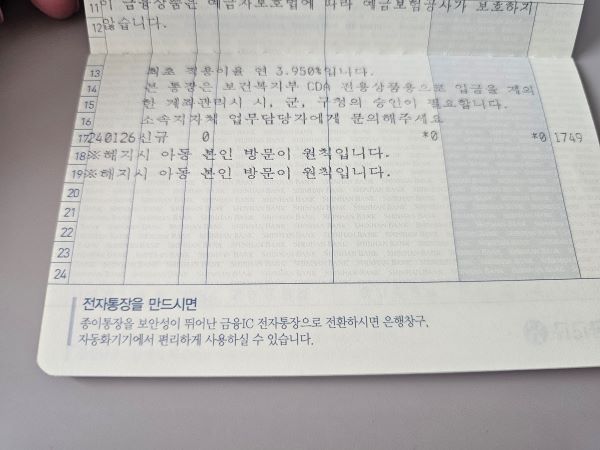 11 이 금융상품은 예금자보호법에 따라 예금보험공사가 보호하지
12 않습니다.
13 최초 적용이율 연 3.950%입니다.
14 본 통장은 보건복지부 CDA 전용상품용으로 입금을 제외
15 한 계좌관리시 시, 군, 구청의 승인이 필요합니다.
16 소속지자체 업무담당자에게 문의해주세요
17 240126 신규 0 *0 *0 1749
18 ※해지시 아동 본인 방문이 원칙입니다.
19 ※해지시 아동 본인 방문이 원칙입니다.
20
21
22
23
24
SHINHAN BANK
전자통장을 만드시면
종이통장을 보안성이 뛰어난 금융IC 전자통장으로 전환하시면 은행창구,
자동화기기에서 편리하게 사용하실 수 있습니다.